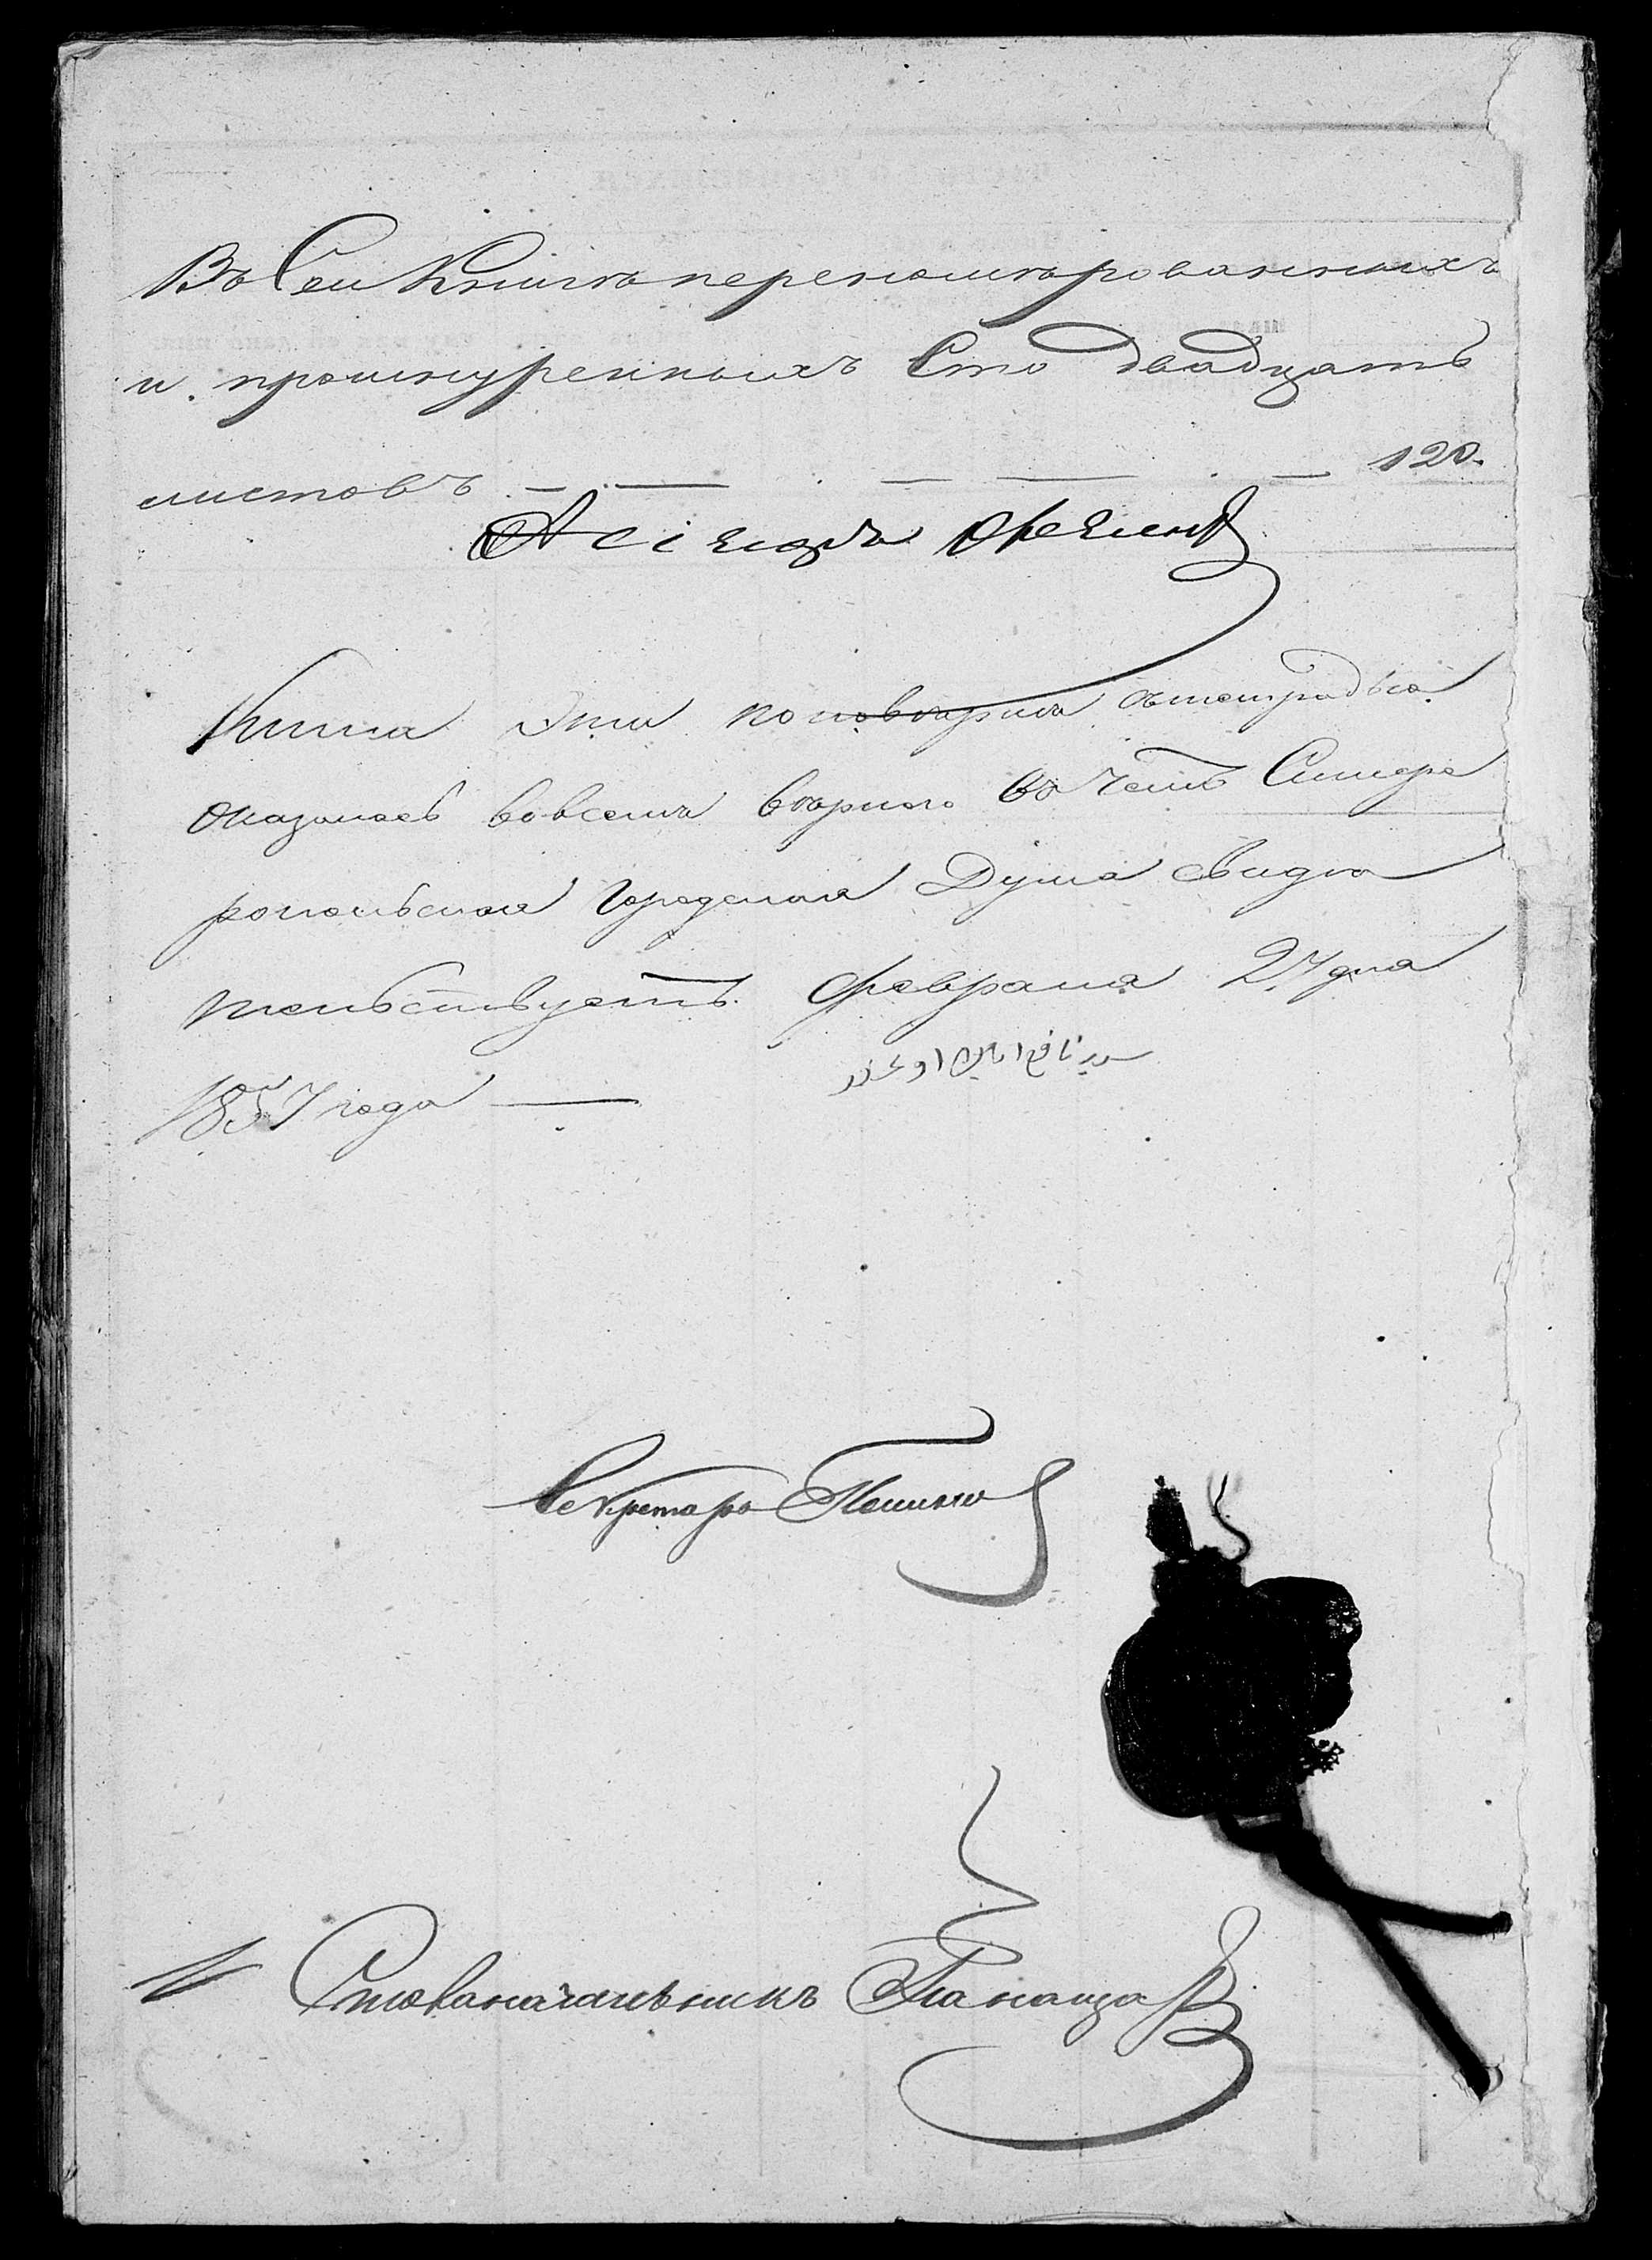 Въ Сеи Книгѣ перенюмѣрованныхъ
и прошнуренныхъ Сто двадцать
листовъ 120.
Асiсоръ
Книга Эта по повѣркѣ
оказалась вовсемъ вѣрною въ чемъ Симфе
ропольская Городская Дума свидѣ
тельствуетъ. Февраля 27 дня
1857 года
Секретарь
Столоначальникъ